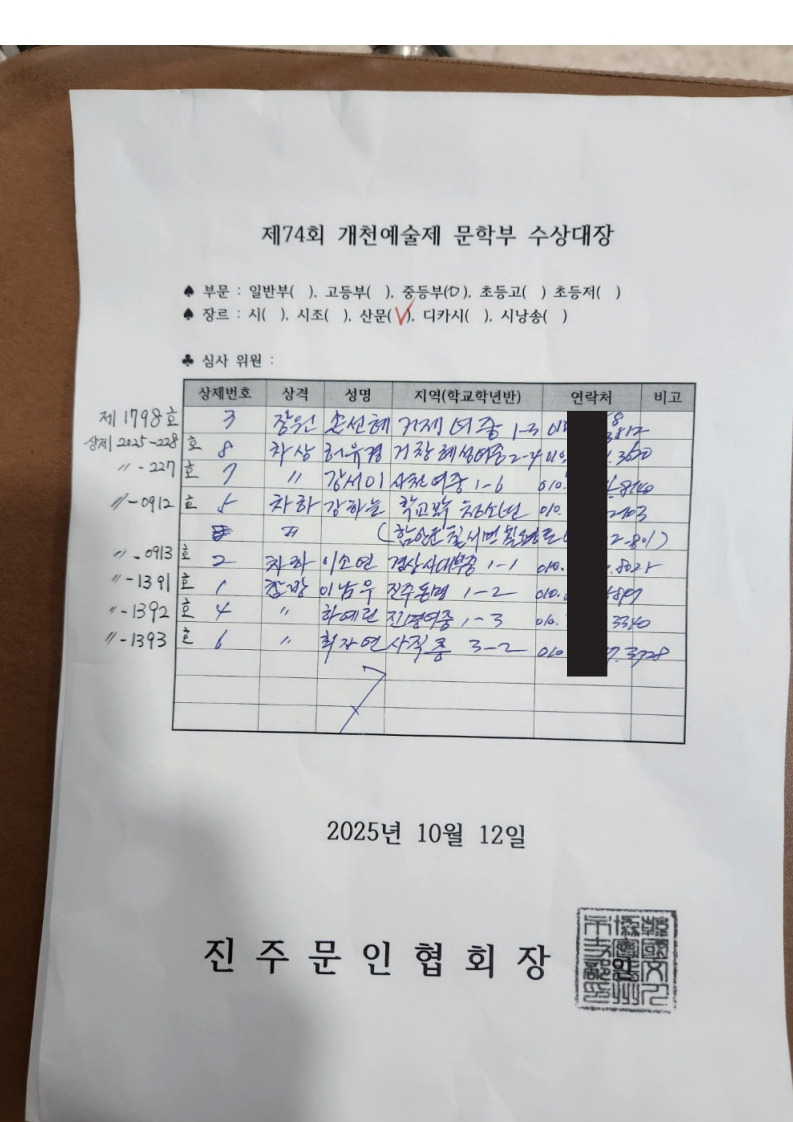 제74회 개천예술제 문학부 수상대장
♠ 부문 : 일반부( ), 고등부( ), 중등부(O), 초등고( ) 초등저( )
♠ 장르 : 시( ), 시조( ), 산문(✓), 디카시( ), 시낭송( )
♣ 심사 위원 :
상제번호 상격 성명 지역(학교학년반) 연락처 비고
제 1798호 3 장원 손선혜 거제여중 1-3
상제 2025-228호 8 차상 허유겸 거창혜성여중 2-4
〃-227호 7 〃 강서이 사천여중 1-6
〃-0912호 5 차하 강하늘 010.
〃-0913호 2 차하 이소연 경상사대부중 1-1 010.
〃-1391호 1 참방 이남우 진주동명 1-2 010.
〃-1392호 4 〃 하예린 진명여중 1-3 010. 3340
〃-1393호 6 〃 최자연 사직중 3-2 010 7.3728
2025년 10월 12일
진주문인협회장 인